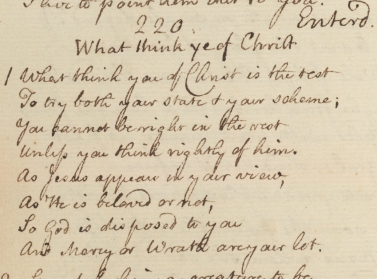 to point them out to you.
220. Enterd.
What think ye of Christ
1 What think you of Christ is the test
To try both your state & your scheme;
You cannot be right in the rest
Unless you think rightly of him.
As Jesus appears in your view,
As He is beloved or not,
So God is disposed to you
And Mercy or Wrath are your lot.